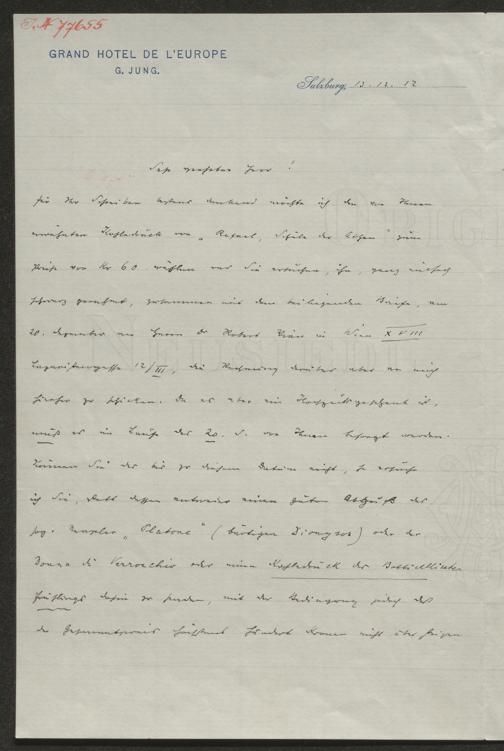 I.N. 77655
GRAND HOTEL DE L'EUROPE
G. JUNG.
Salzburg, 13. 12. 12
Sehr geehrter Herr!
für Ihr Schreiben bestens dankend möchte ich den von Ihnen
erwähnten Kohledruck von „Rafael, Schule der Athen" zum
Preise von Kr 60 wählen und Sie ersuchen, ihn, ganz einfach
schwarz gerahmt, zusammen mit dem beiliegenden Briefe, am
20. Dezember an Herrn Dr Robert in Wien XVIII
12/III, die Rechnung darüber aber an mich
hierher zu schicken. Da es aber ein Hochzeitsgeschenk ist,
muß es im Laufe des 20. d. von Ihnen besorgt werden.
Können Sie das bis zu diesem Datum nicht, so ersuche
ich Sie, statt dessen entweder einen guten Abguß des
sog. Neapler „Platone" (bärtigen Dionysos) oder der
Donna di Verrocchio oder einen Kohledruck des Botticellischen
Frühlings dahin zu senden, mit der Bedingung jedoch daß
der Gesammtpreis hundert Kronen nicht übersteigen